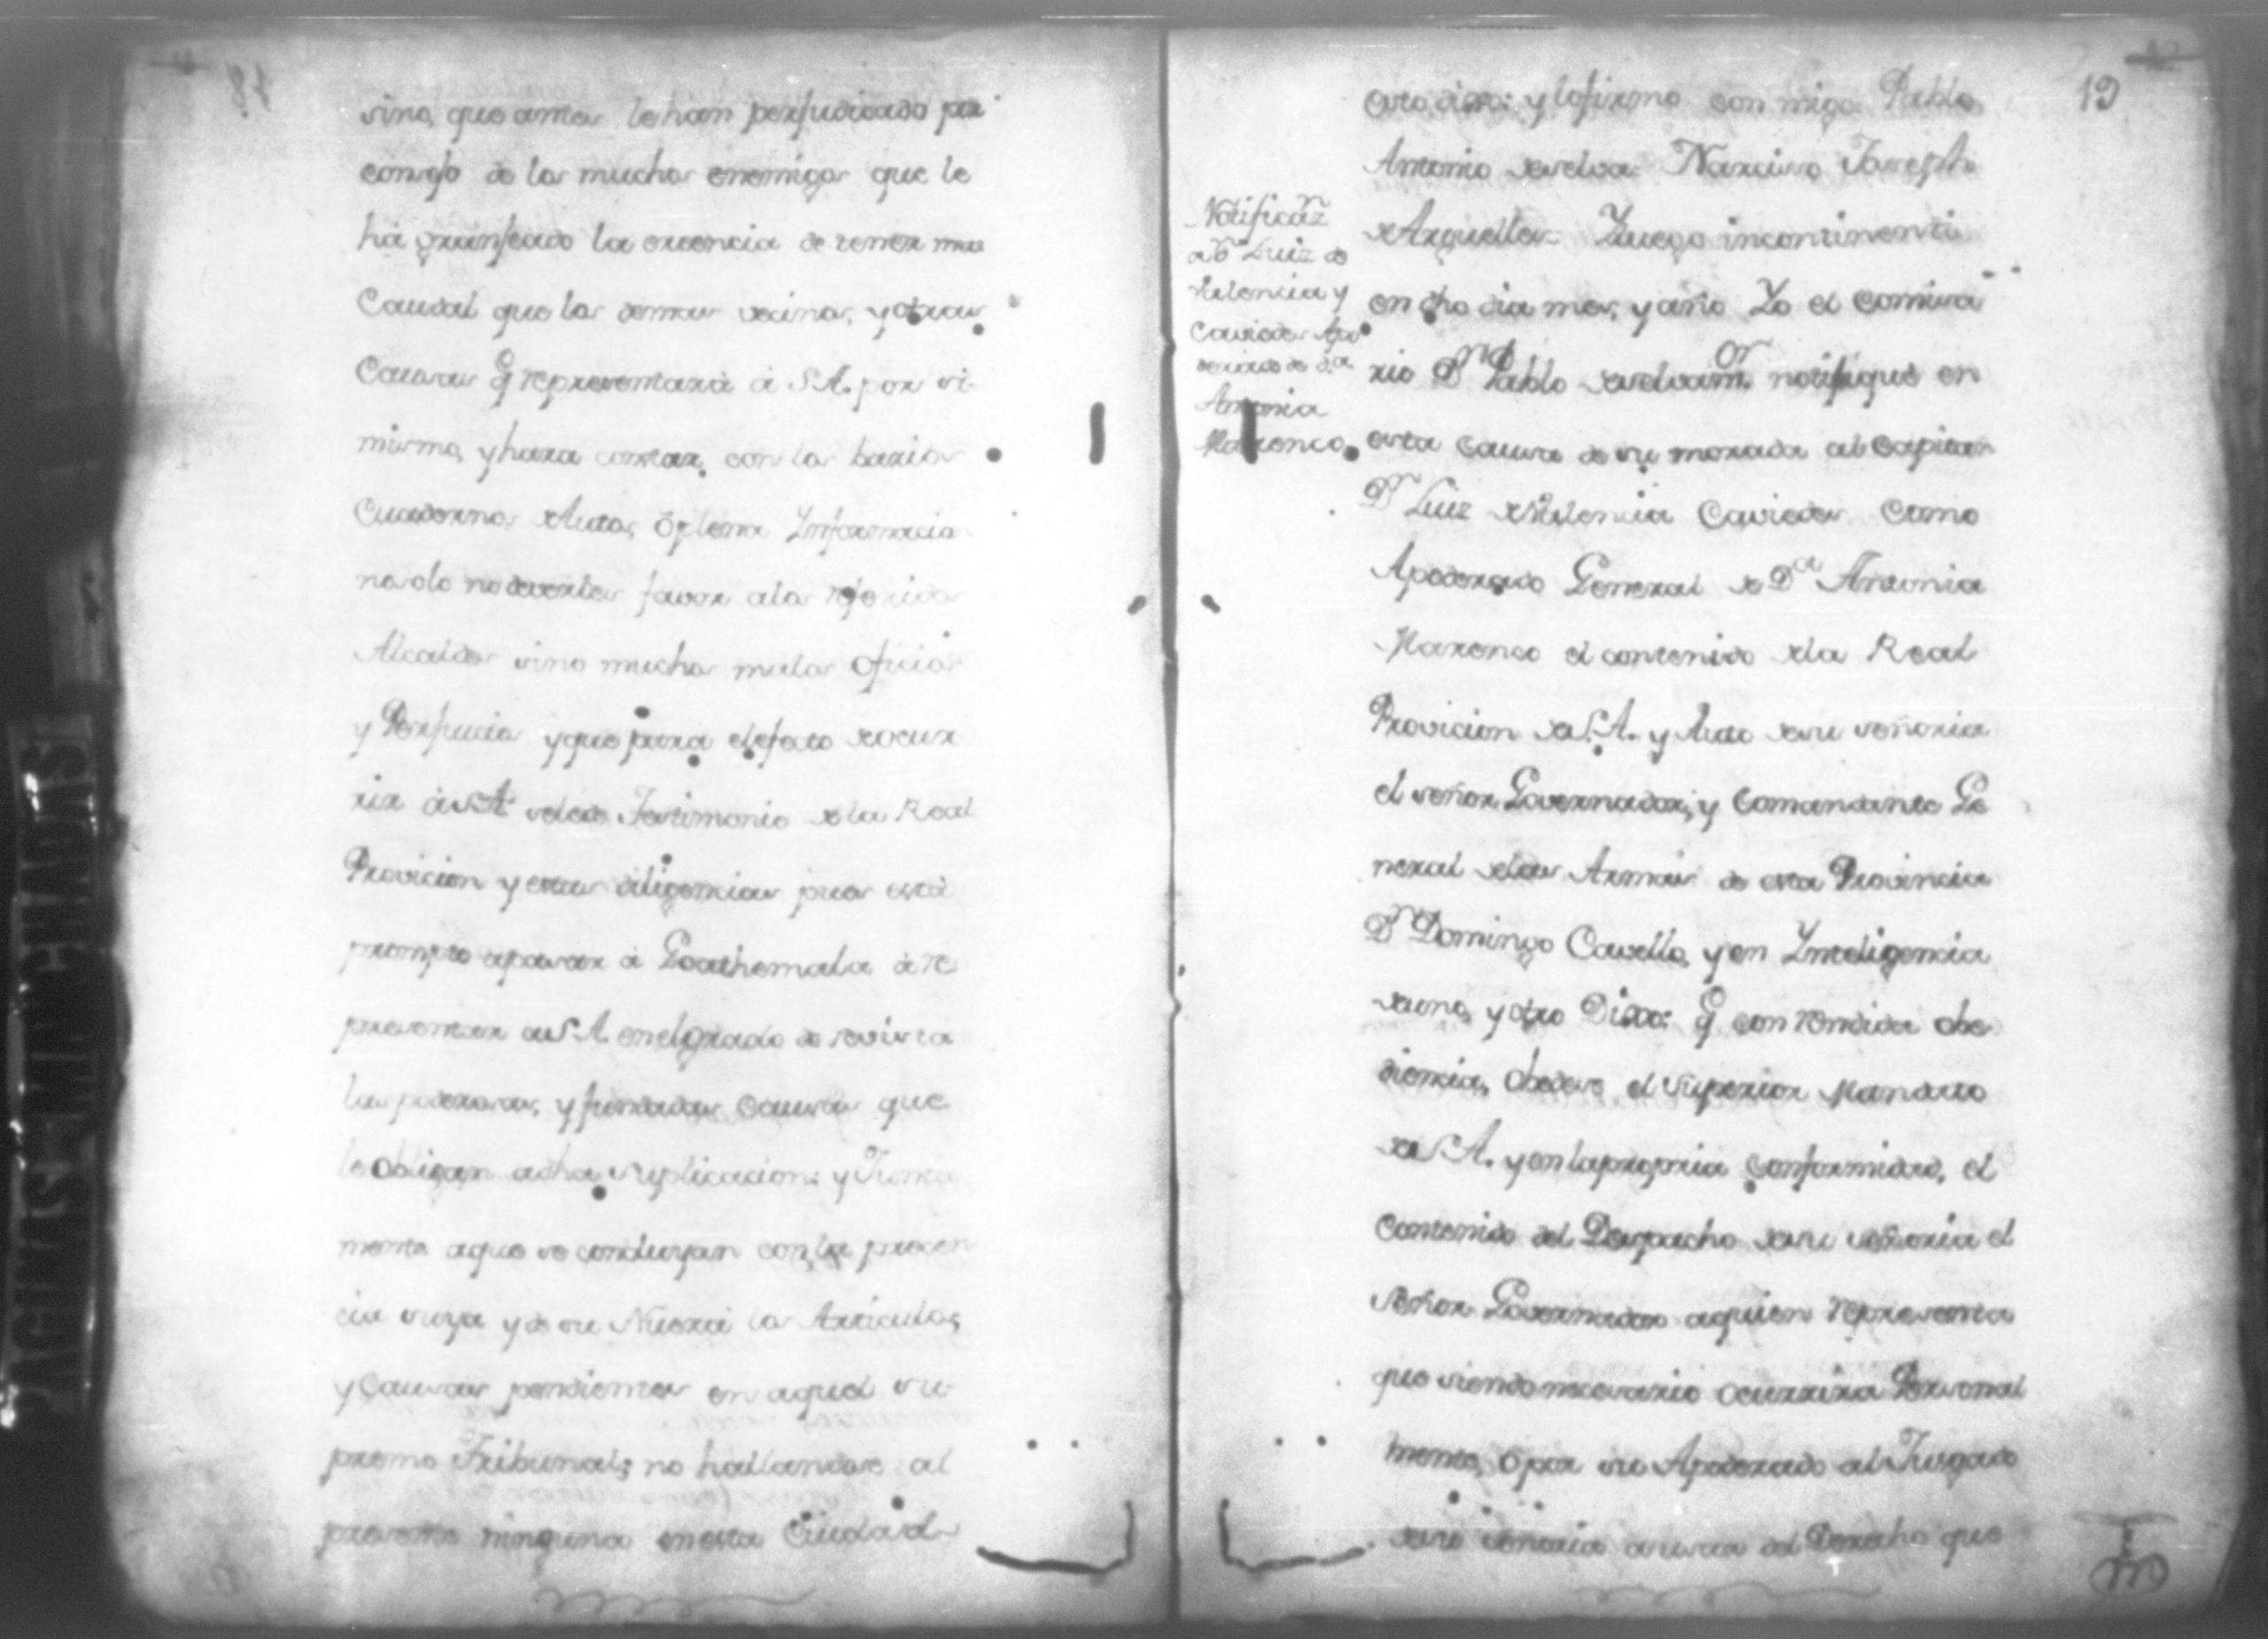 sino, que antes le han perjudicado por
consejo de los muchos enemigos que le
há granjeado la creencia de tener mas
Caudal que los demas vecinos, y otras
Causas q representará á S.A. por si
mismo, y hará constar, con los barios
Cuadernos de Autos, ó plena Informacion
no solo no deverles favor a los referidos
Alcaldes sino muchos malos oficios
y Perjuicios y que para el efecto de ocur
rir á S.A. se le de Testimonio de la Real
Provicion y estas diligencias pues está
prompto a pasar á Goathemala á re
presentar a S.A. en el grado de revista
las poderosas, y fundadas Causas que
le obligan a dha suplicacion: y Junta
mente a que se concluyan con la precen
cia suya y de su Nuera los Articulos,
y Causas pendientes en aquel su
premo Tribunal; no hallandose al
presente ninguna en esta Ciudad
19
esto dixo: y lo firmo con migo Pablo
Antonio de Selva. Narciso Joseph
de Arguelles. Luego incontinenti
en dho dia mes, y año Yo el Comisa
rio Dn Pablo de Selva notifiqué en
esta Causa de su morada al Capitan
Dn Luiz de Valencia Caviedes como
Apoderado General de Da Antonia
Marenco el contenido de la Real
Provicion de S.A. y Auto de su señoria
el señor Governador, y Comandante Ge
neral de las Armas de esta Provincia
Dn Domingo Cavello, y en Inteligencia
de uno, y otro Dixo: q con rendida obe
diencia, obedece el Superior Mandato
de S.A. y en la propria conformidad, el
Contenido del Despacho de su señoria el
Señor Governador a quien representa
que siendo necesario ocurrira Personal
mente, ó por su Apoderado al Jusgado
de su señoria a usar del Derecho que
Notificazn
a Dn Luiz de
Valencia y
Caviedes Apo
derado de Da
Antonia
Marenco